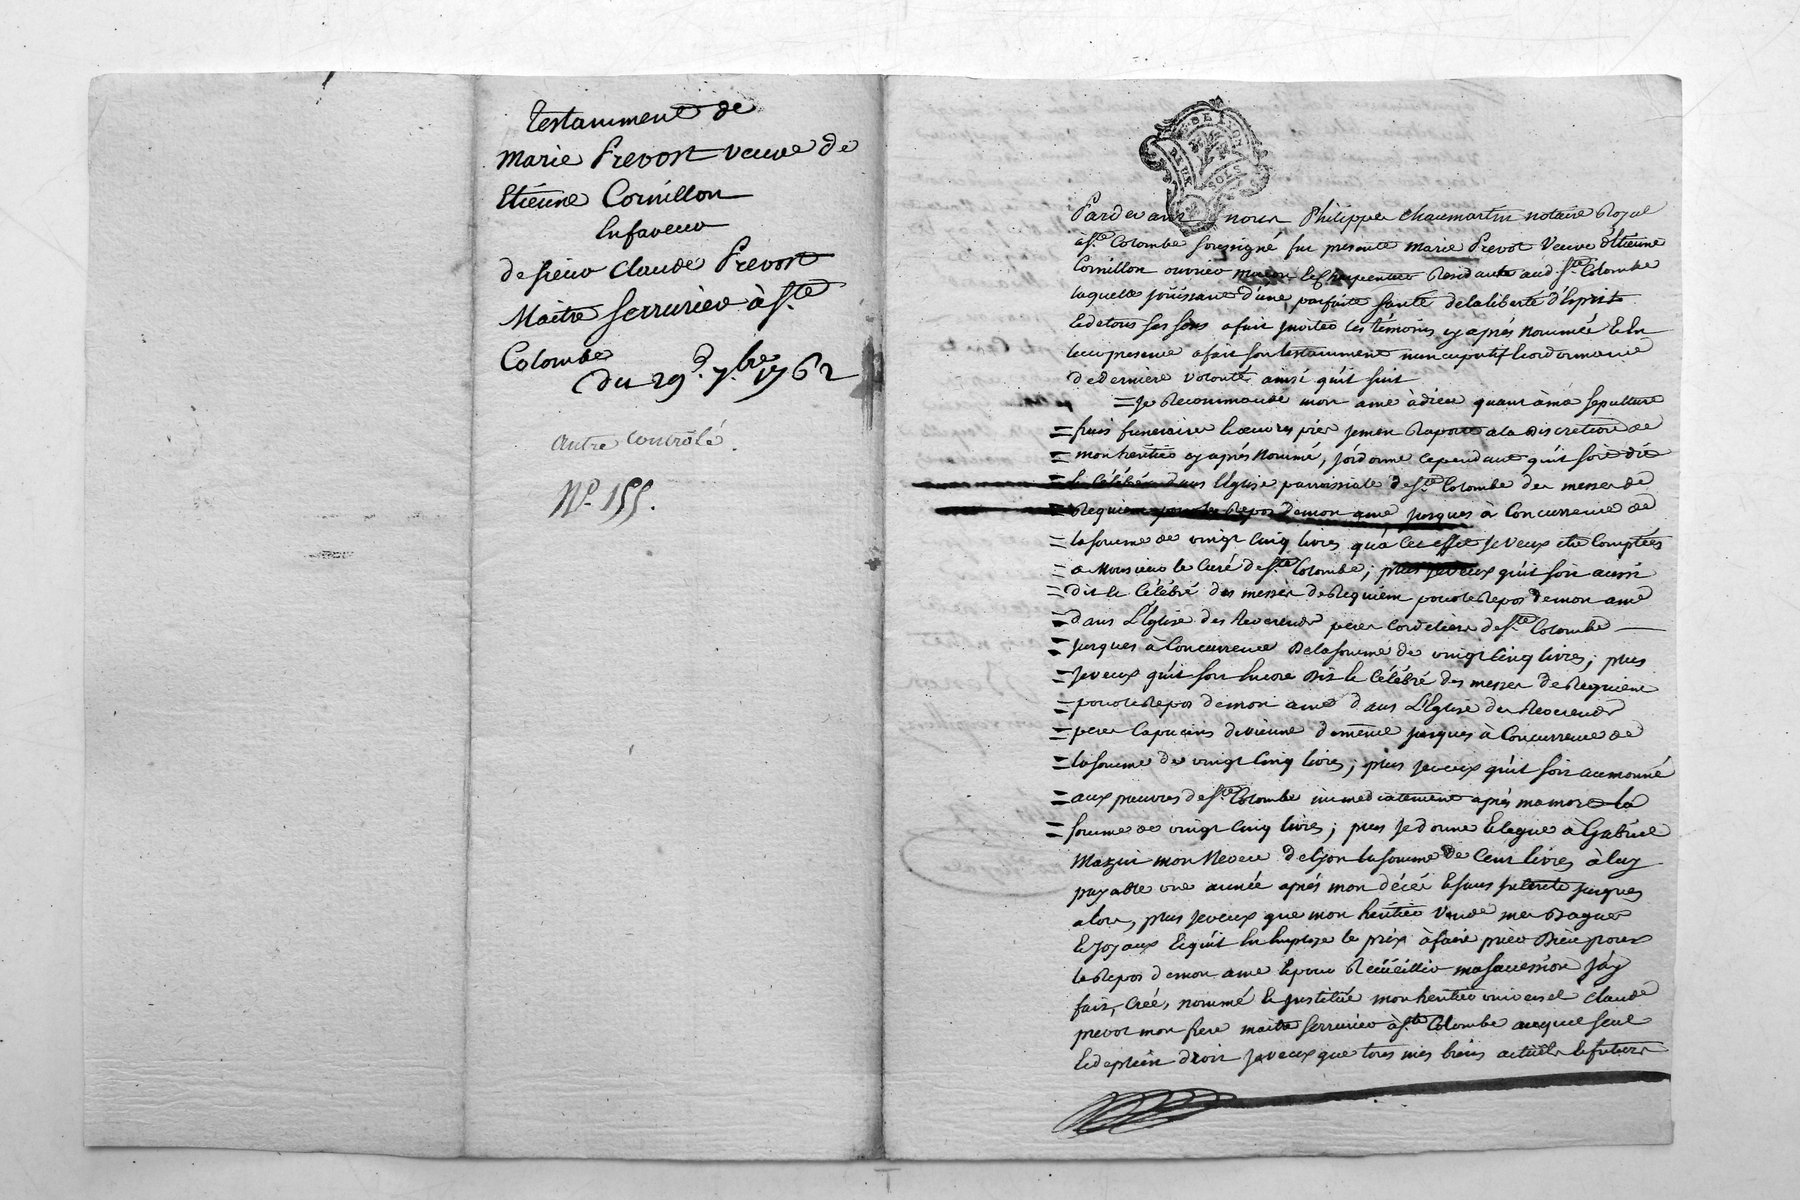 testamment de
Marie Prevost veuve de
Etienne Cornillon
En faveur
de sieur Claude Prevost
Maitre serrurier à Ste
Colombe
du 29e 7bre 1762
autre controlé.
No. 155.
DE LYON
DEUX SOLS
Pardevant nous Philippe Chaumartin notaire Royal
à Ste Colombe soussigné fut presente Marie Prevot Veuve d'Etienne
Cornillon ouvrier maçon et charpentier Residante aud. Ste Colombe
laquelle jouissant d'une parfaite santé de la liberté d'Esprit
et de tous ses sens a fait inviter les témoins cy aprés nommés et En
leur presence a fait son testamment nuncupatif et ordonnance
de derniere volonté ainsi qu'il suit
= je Recommande mon ame à dieu quant à ma sepulture
= frais funeraires et oeuvres pies jemen Raporte a la discretion de
= mon heritier cy aprés nommé, j'ordonne cependant qu'il soit dit
= et célébré dans l'Eglise parroissiale de Ste Colombe des messes de
= Requiem pour le Repos de mon ame jusques à Concurrence de
= la somme de vingt Cinq livres qu'a Cet effet je veux etre Comptées
= a Monsieur le Curé de Ste Colombe; plus je veux qu'il soit aussi
= dit et Célébré des messes de Requiem pour le Repos de mon ame
= dans L'Eglise des Reverends peres Cordeliers de Ste Colombe
= jusques à Concurrence de la somme de vingt Cinq livres; plus
= je veux qu'il soit Encore dit et Célébré des messes de Requiem
= pour le Repos de mon ame dans L'Eglise des Reverends
= peres Capucins de vienne de même jusques à Concurrence de
= la somme de vingt Cinq livres; plus je veux qu'il soit aumonné
= aux pauvres de Ste Colombe immediatement aprés ma mort la
= somme de vingt Cinq livres; plus je donne et legue à Gabriel
Mazui mon Neveu de Lyon la somme de Cent livres à luy
payable une année aprés mon décés et sans interets jusques
alors, plus je veux que mon heritier vende mes Bagues
et joyaux et qu'il En Employe le prix à faire prier Dieu pour
le Repos de mon ame et pour Recueillir ma succession j'ay
fait, Créé, nommé et institué mon heritier universel Claude
prevot mon frere maitre serrurier à Ste Colombe auquel seul
et de plein droit je veux que tous mes biens actuels et futurs